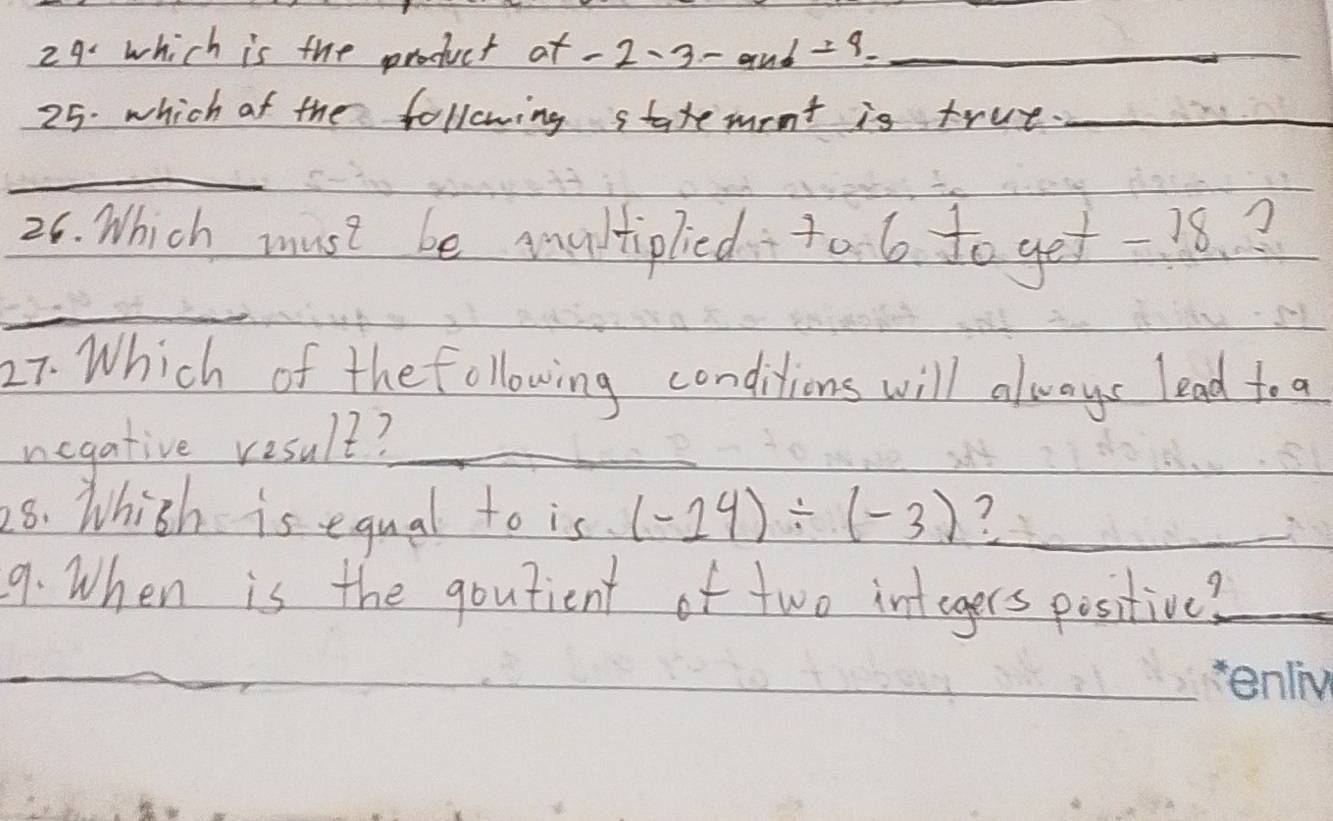 29. which is the product at -2 - 3 - and = 9.
25. which at the following statement is true.
26. Which must be multiplied to 6 to get -18?
27. Which of the following conditions will always lead to a
negative result?
28. Which is equal to is (-24) ÷ (-3)?
29. When is the qoutient of two integers positive?
*enliv